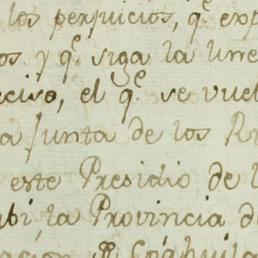 los perjuicios, q.e exp
os y q.e siga la linea
eciso, el q.e se vuel
a Junta de los R
este Presidio de l
abi, la Provincia d
Coahuila